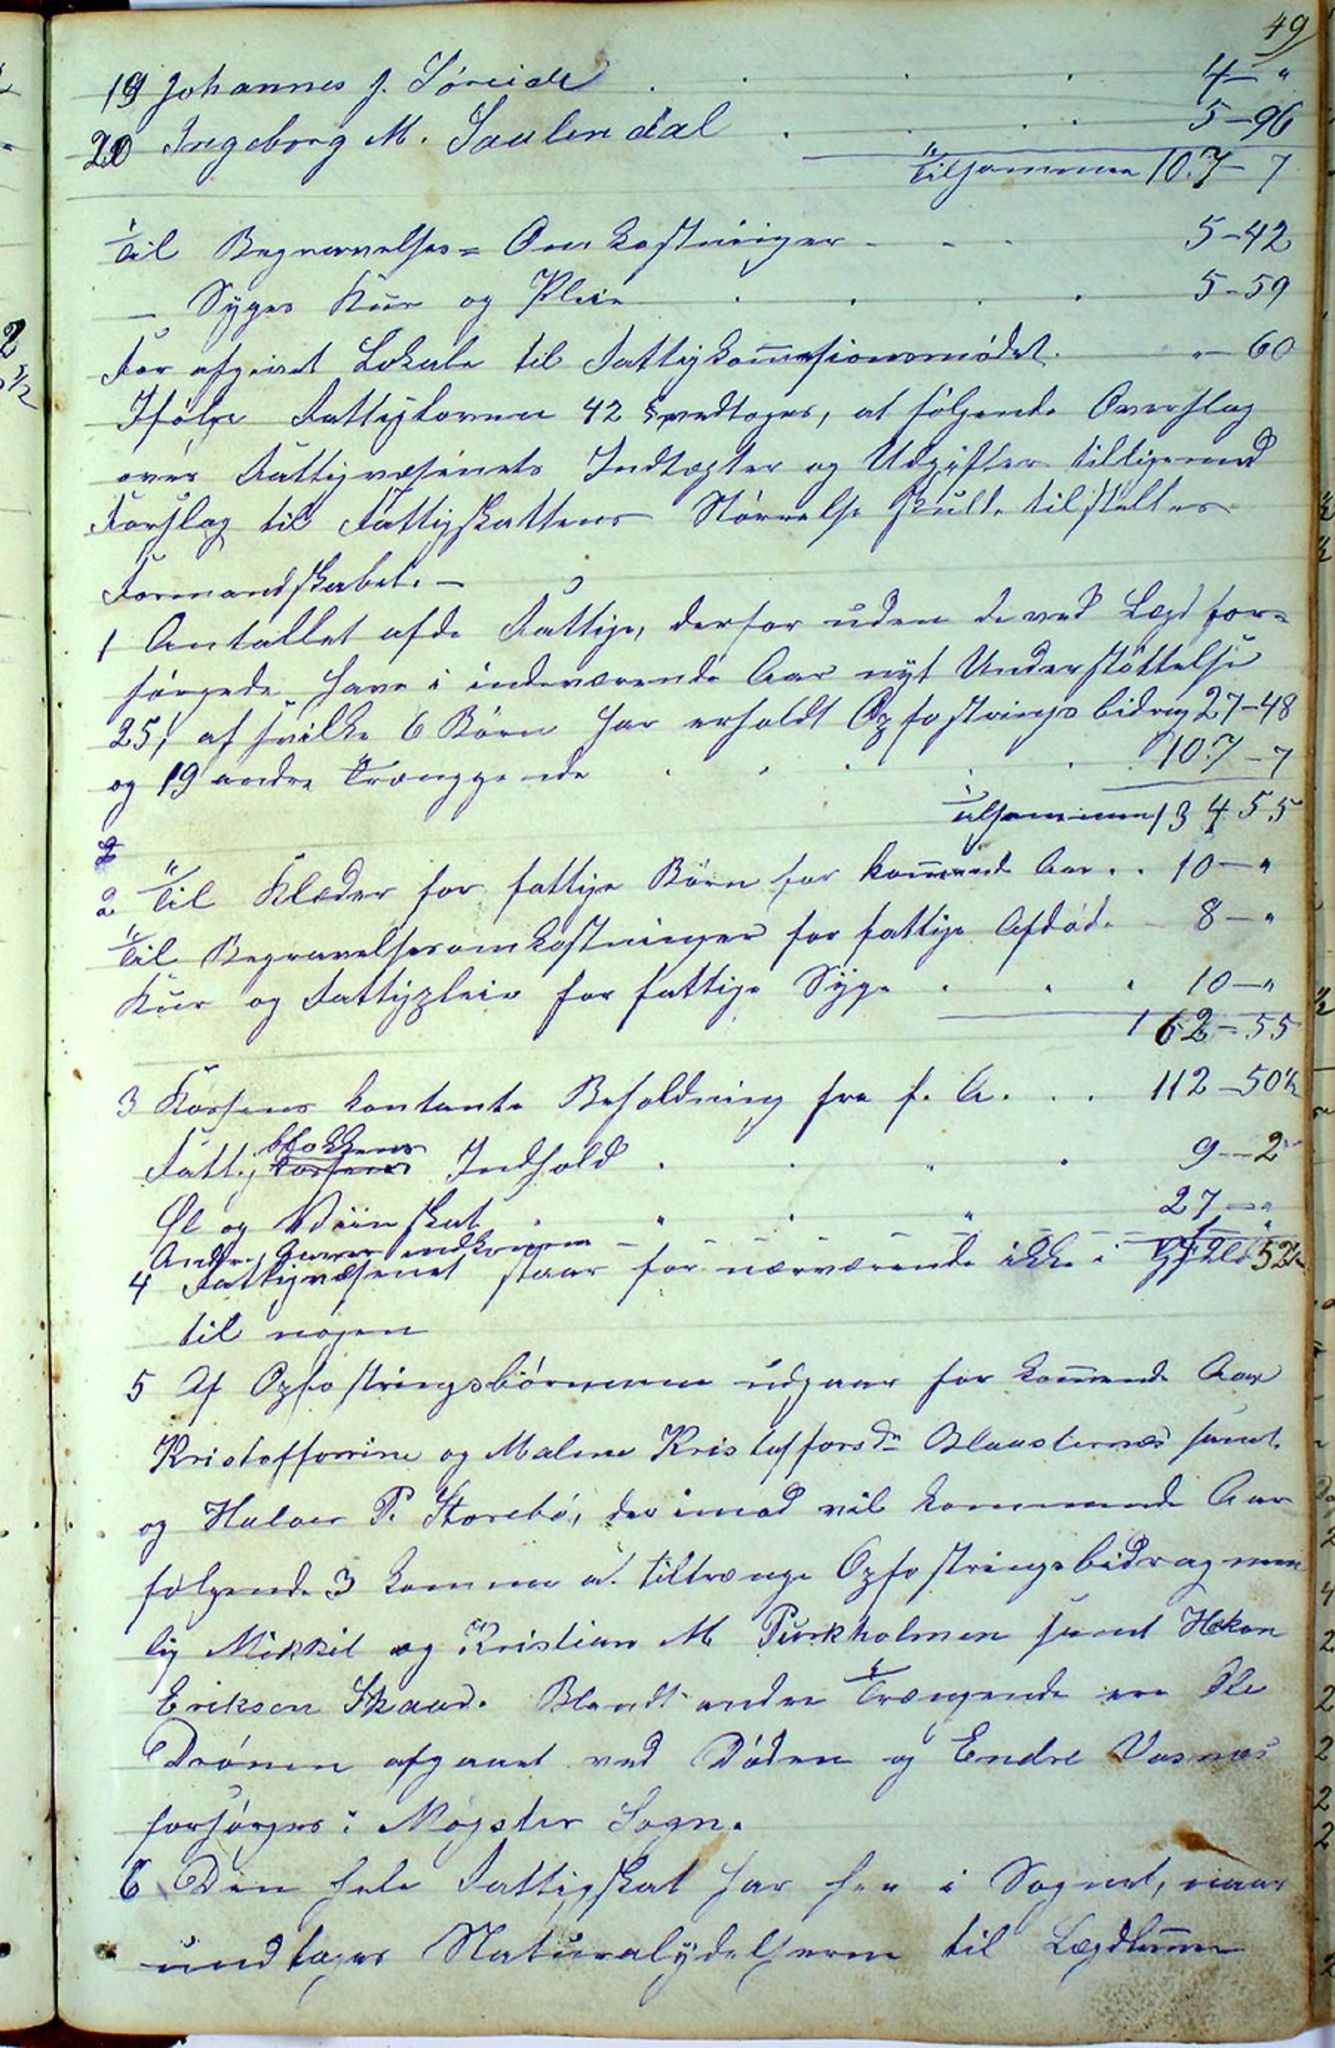 49
19 Johannes J. Søreide . . . . 4 - "
20 Ingeborg M. Saulendal . . . . 5 - 96
Tilsammen 107 - 7
Til Begravelses= Omkostninger - - - 5 - 42
- Syges Kur og Pleie . . . . 5 - 59
For afgivet Lokale til Fattigkommisionsmødet. " - 60
Ifølge Fattigloven 42 § vedtoges, at følgende Overslag
over Fattigvæsenets Indtægter og Udgifter tilligemed
Forslag til Fattigskattens Størrelse skulle tilstilles
Formandskabet. -
1 Antallet af de Fattige, der for uden de ved Lægd for=
sørgede have i indeværende Aar nyt Understøttelse
25, af hvilke 6 Børn har erholdt Opfostringsbidrag 27 - 48
og 19 andre Trænggende . . . . 107 - 7
Tilsammen 134 55
2 Til Klæder for fattige Børn for kommende Aar . . 10 - "
Til Begravelsesomkostninger for fattige Afdøde - 8 - "
Kur og Fattigpleie for fattige Syge . . . 10 - "
162 - 55
3 Kassens kontante Beholdning fra f. A. . . 112 - 50½
Fattig blokkens Kassens Indhold . . . . 9 - 2
Øl og Viinskat . . . . 27 - "
Andre Gaver indkomne - - - - - -
4 Fattigvæsenet staar for nærværende ikke i Gjæld 52½
til nogen
5 Af Opfostringsbørnene udgaar for kommende Aar
Kristofforine og Malene Kristoffersdr Blaasternæs samt
og Halvor P. Storebø, derimod vil kommende Aar
følgende 3 komme at tiltrænge Opfostringsbidrag nem
lig Mikkel og Kristian M Purkholmen samt Hakon
Eriksen Skaar. Blandt andre Trængende ere Ole
Drønen afgaaet ved Døden og Endre Vasnæs
forsørges i Møgster Sogn.
6 Den hele Fattigskat har her i Sognet, naar
undtages Naturalydelserne til Lægdlemmer